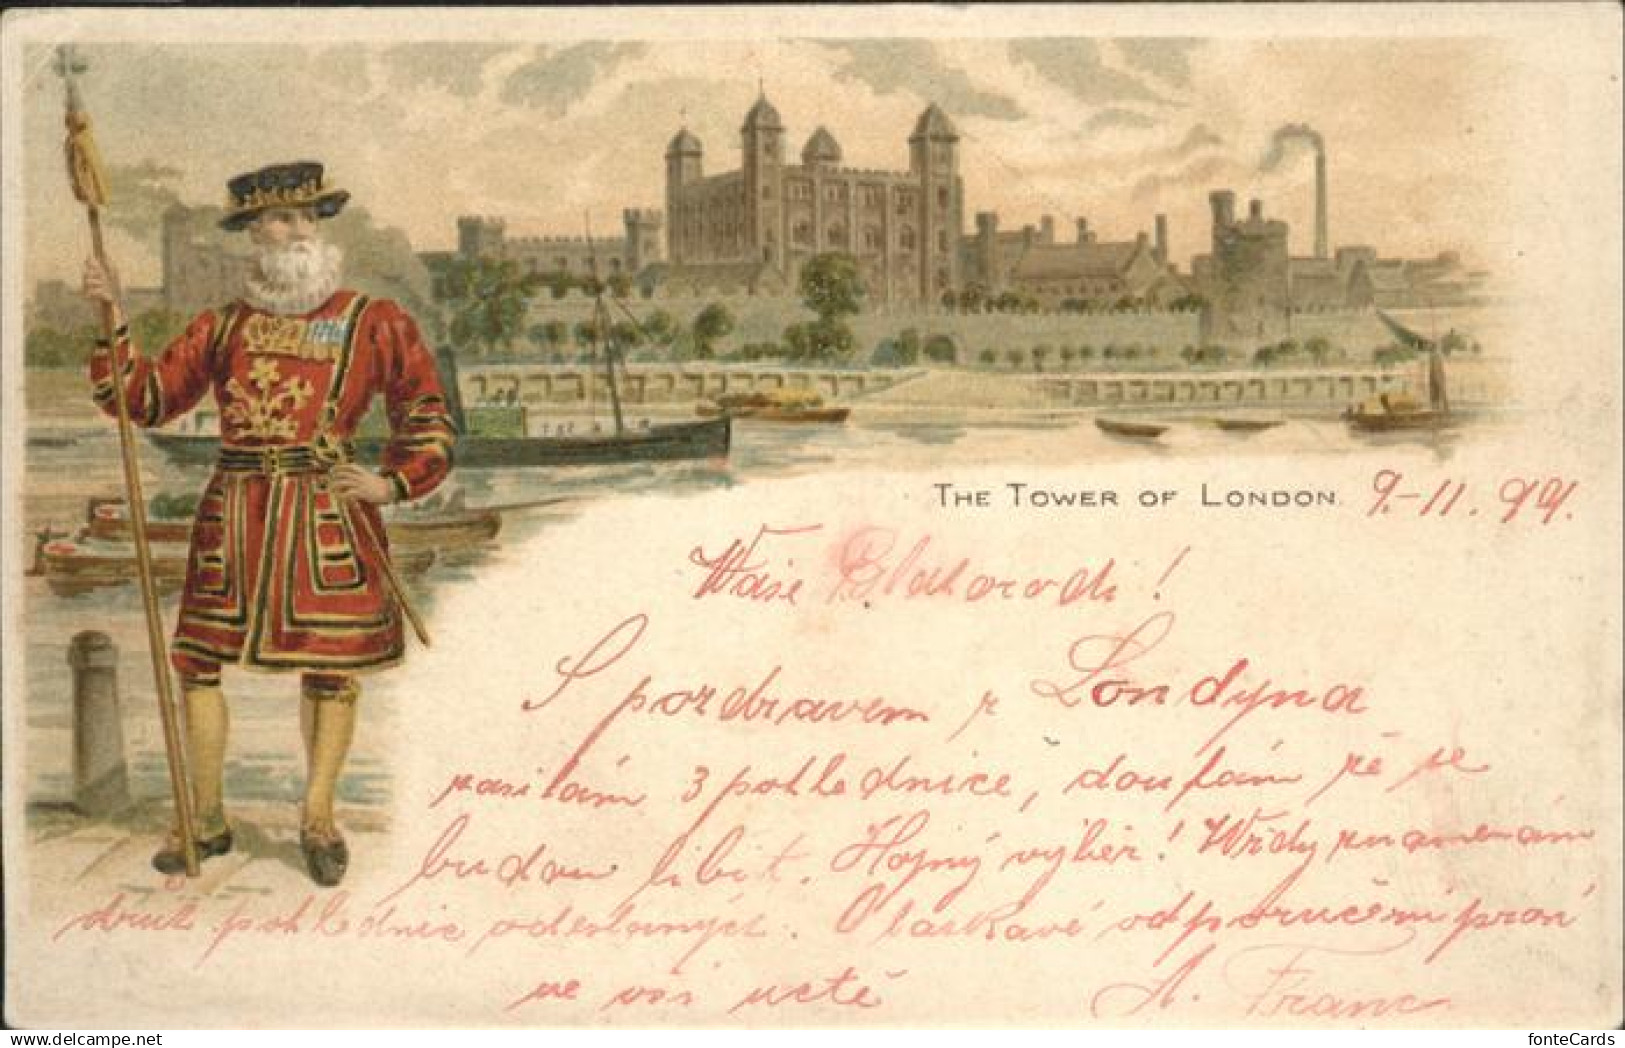 THE TOWER OF LONDON. 9.-11. 99.
Vaše Blahorodí!
S pozdravem z Londýna
zasílám 3 pohlednice, doufám že se
budou líbit. Hojný výběr! Vždy znamenám
druh pohlednic odeslaných. O laskavé odporučení prosí
ve vší uctě A. Franc
fonteCards